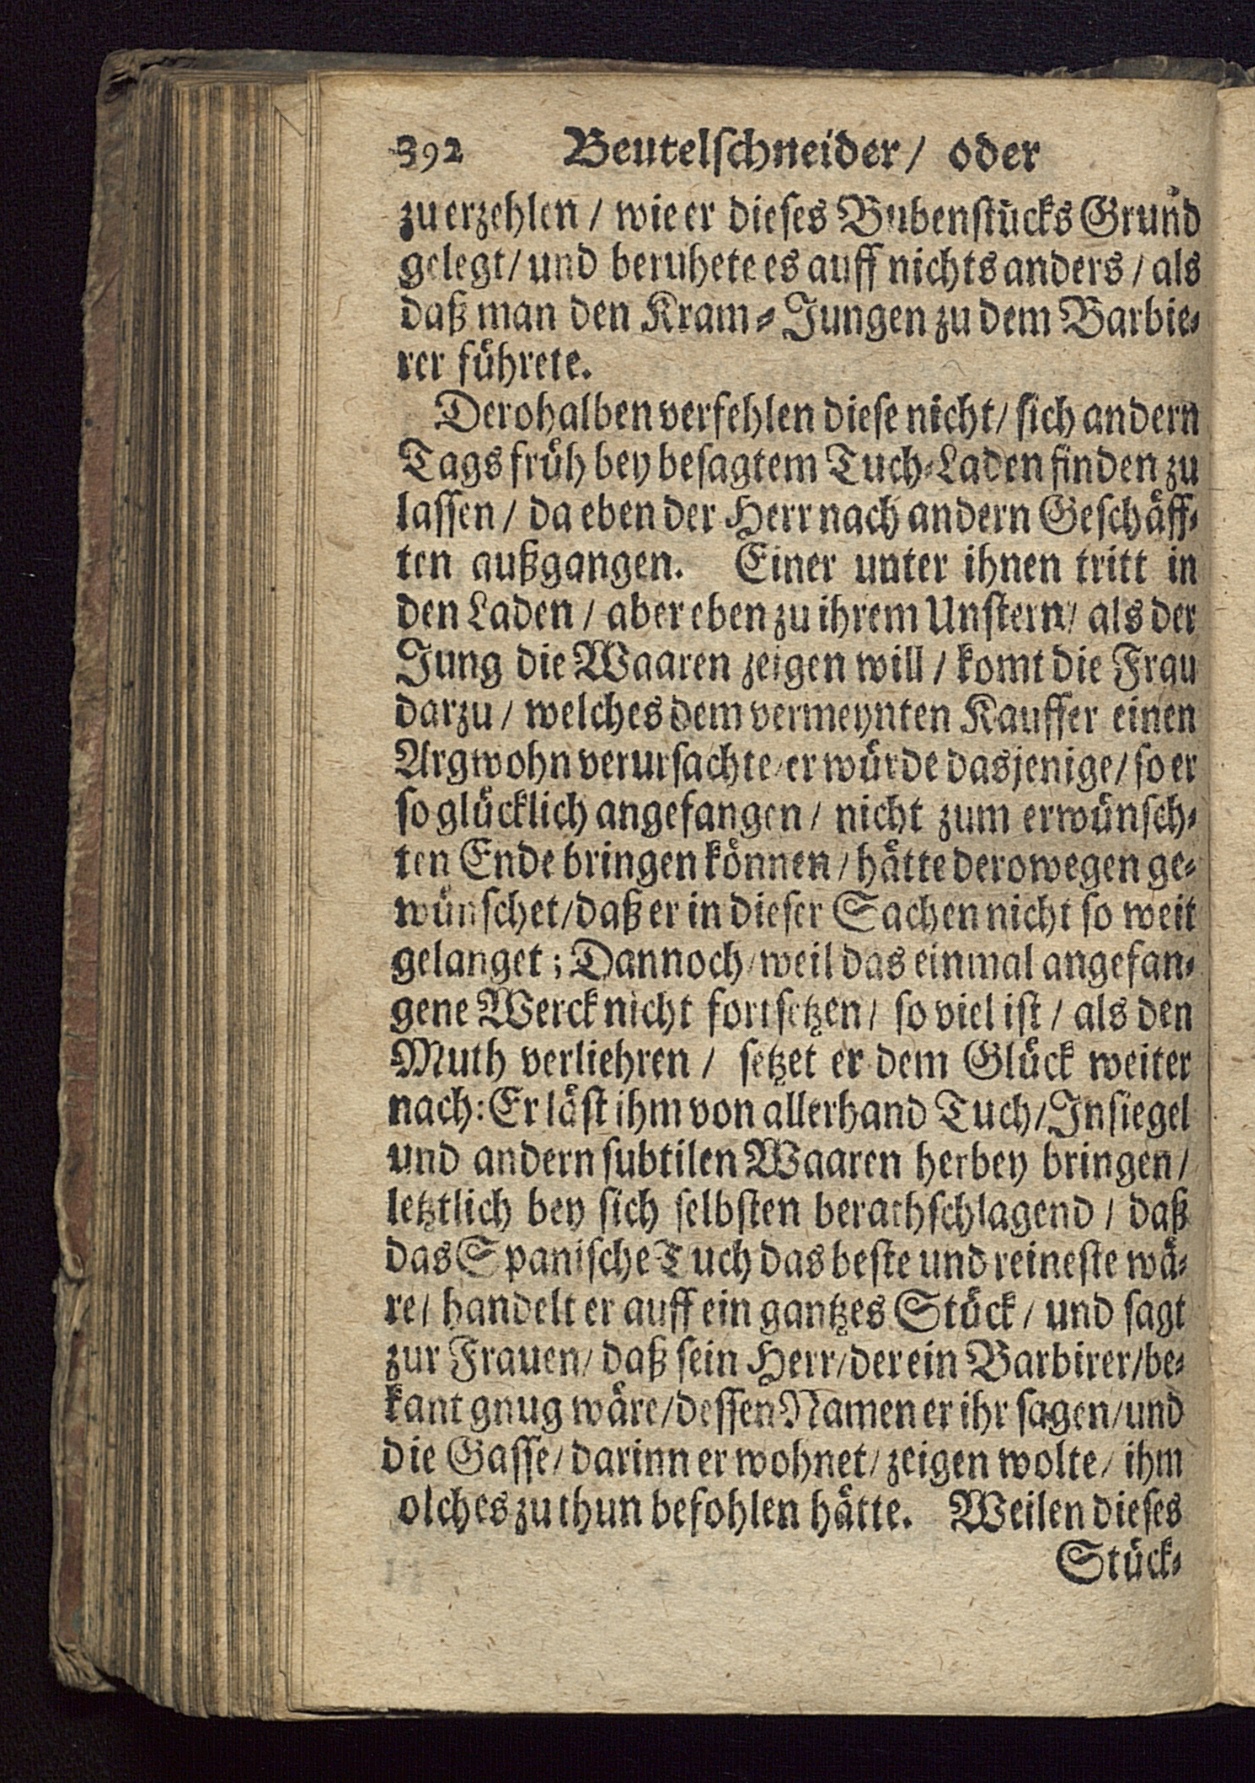 392 Beutelschneider/ oder
zu erzehlen / wie er dieses Bubenstücks Grund
gelegt/ und beruhete es auff nichts anders / als
daß man den Kram-Jungen zu dem Barbie-
rer führete.
Derohalben verfehlen diese nicht/ sich andern
Tags früh bey besagtem Tuch-Laden finden zu
lassen / da eben der Herr nach andern Geschäff-
ten außgangen. Einer unter ihnen tritt in
den Laden / aber eben zu ihrem Unstern/ als der
Jung die Waaren zeigen will / komt die Frau
darzu / welches dem vermeynten Kauffer einen
Argwohn verursachte/ er würde dasjenige/ so er
so glücklich angefangen / nicht zum erwünsch-
ten Ende bringen können / hätte derowegen ge-
wünschet/ daß er in dieser Sachen nicht so weit
gelanget; Dannoch/ weil das einmal angefan-
gene Werck nicht fortsetzen / so viel ist / als den
Muth verliehren / setzet er dem Glück weiter
nach: Er läst ihm von allerhand Tuch/ Insiegel
und andern subtilen Waaren herbey bringen /
letztlich bey sich selbsten berathschlagend / daß
das Spanische Tuch das beste und reineste wä-
re/ handelt er auff ein gantzes Stück / und sagt
zur Frauen/ daß sein Herr/ der ein Barbirer/ be-
kant gnug wäre/ dessen Namen er ihr sagen/ und
die Gasse/ darinn er wohnet/ zeigen wolte/ ihm
olches zu thun befohlen hätte. Weilen dieses
Stück-